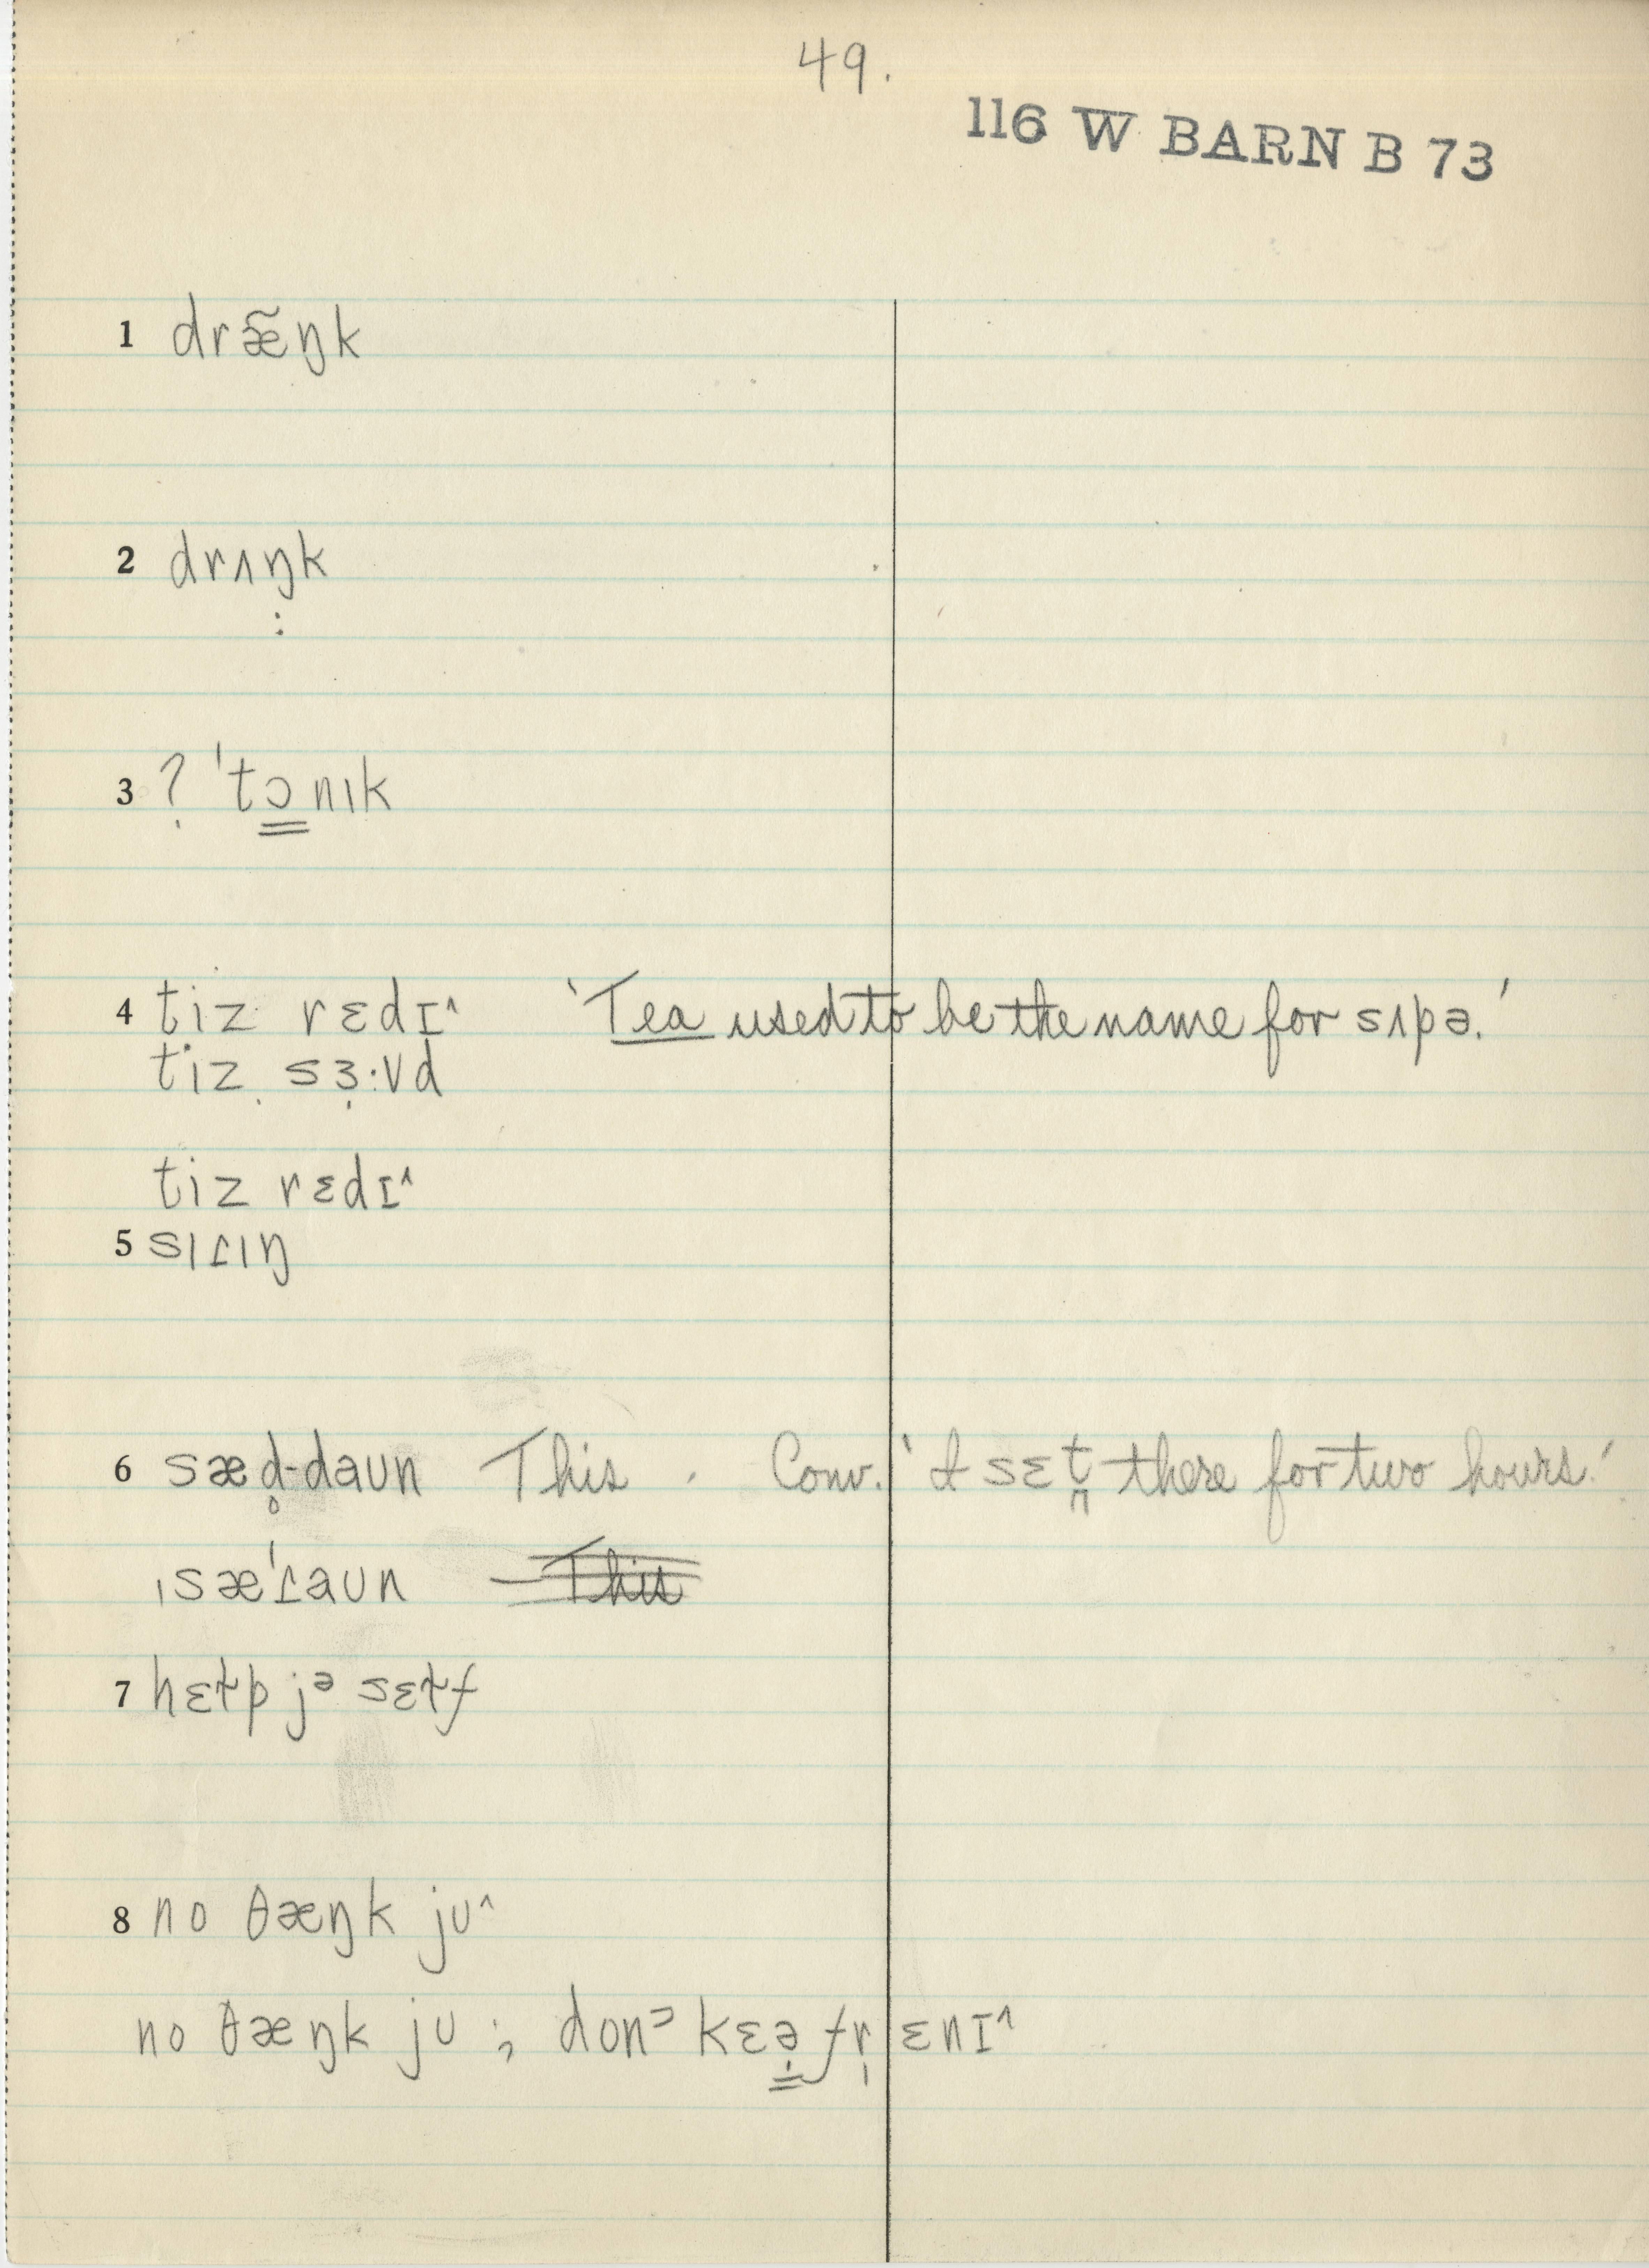 49.
116 W BARN B 73
1 dræ̃ŋk
2 drʌŋk
:
3 ? ˈtɔ̳nɪk
4 tiz rɛdɪ^ 'Tea used to be the name for sʌpə.'
tiz sɜ:vd
tiz rɛdɪ^
5 sɪɾɪŋ
6 sæd̥-daʊn This. Conv. 'I sɛt̪ there for two hours.'
ˌsæˈɾaʊn This
7 hɛɫp jᵊ sɛɫf
8 no θæŋk jʊ^
no θæŋk jʊ ; donᵓ kɛə̳ fr̩ ɛnɪ^